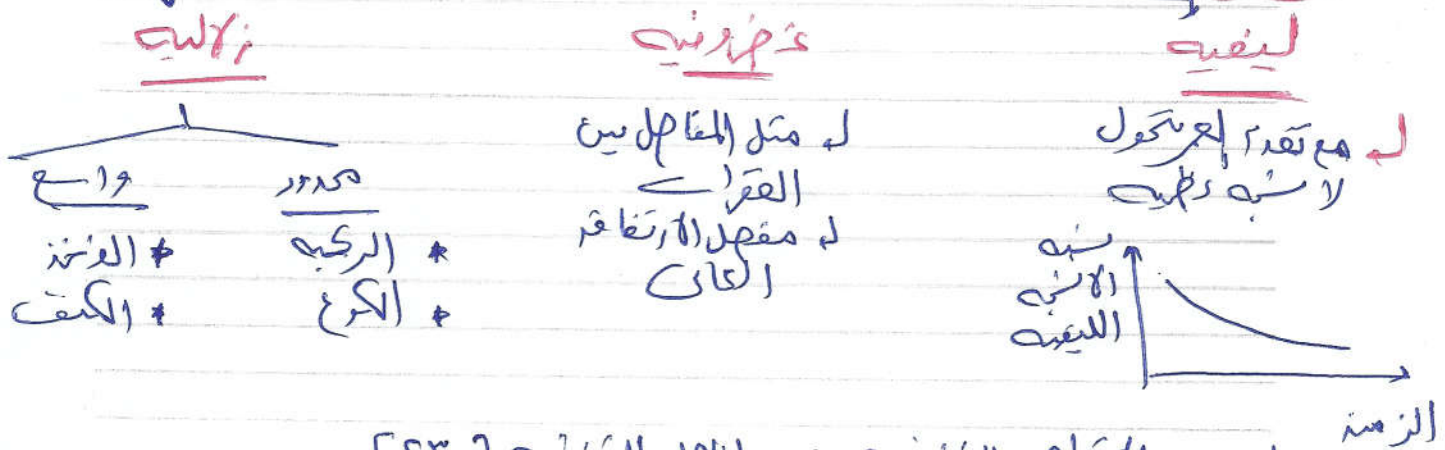 ليفيه
غضروفيه
زلاليه
مع تقدم العمر تتحول
لانسجه عظميه
نسبه
الانسجه
الليفيه
الزمن
مثل المفاصل بين
الفقرات
مفصل الارتفاق
العانى
محدود
* الركبه
* الكوع
واسع
* الفخذ
* الكتف